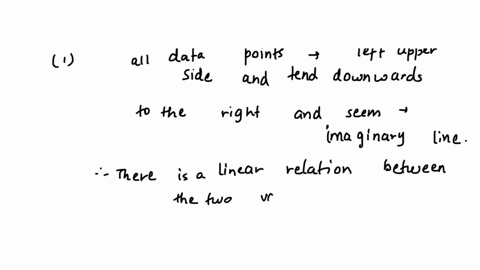 (1) all data points → left upper
side and tend downwards
to the right and seem →
imaginary line.
∴ There is a linear relation between
the two